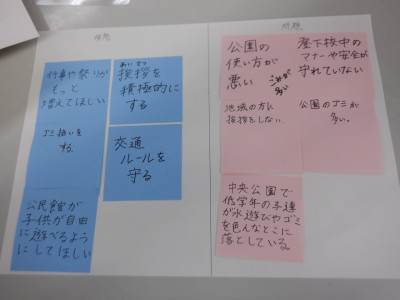 行事や祭りが
もっと
増えてほしい
あいさつ
挨拶を
積極的に
する
ゴミ拾いを
する。
交通
ルールを
守る
公民館が
子供が自由
に遊べるよう
にしてほしい
問題
公園の
使い方が
悪い
ごみが
多い
登下校中の
マナーや安全が
守れていない
地域の方に
挨拶をしない
公園のゴミが
多い。
中央公園で
低学年の子達
が水遊びやゴミ
を色んなとこに
落としている。